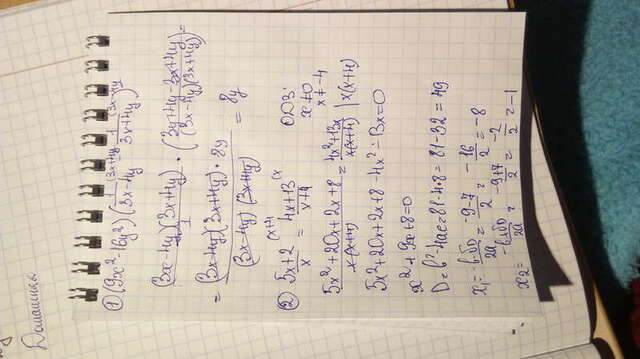 Домашка
① (9x² - 16y²) (1/(3x-4y) - 1/(3x+4y))
(3x-4y)(3x+4y)/1 · (3x+4y-3x+4y)/((3x-4y)(3x+4y)) =
= (3x-4y)(3x+4y)·8y / (3x-4y)(3x+4y) = 8y
② (5x+2)/x = (4x+13)/(x+4) ОДЗ: x≠0 x≠-4
(5x²+20x+2x+8)/(x(x+4)) = (4x²+13x)/(x(x+4)) | x(x+4)
5x²+20x+2x+8-4x²-13x=0
x²+9x+8=0
D=b²-4ac=81-4·8=81-32=49
x₁=(-b-√D)/2a=(-9-7)/2=-16/2=-8
x₂=(-b+√D)/2a=(-9+7)/2=-2/2=-1